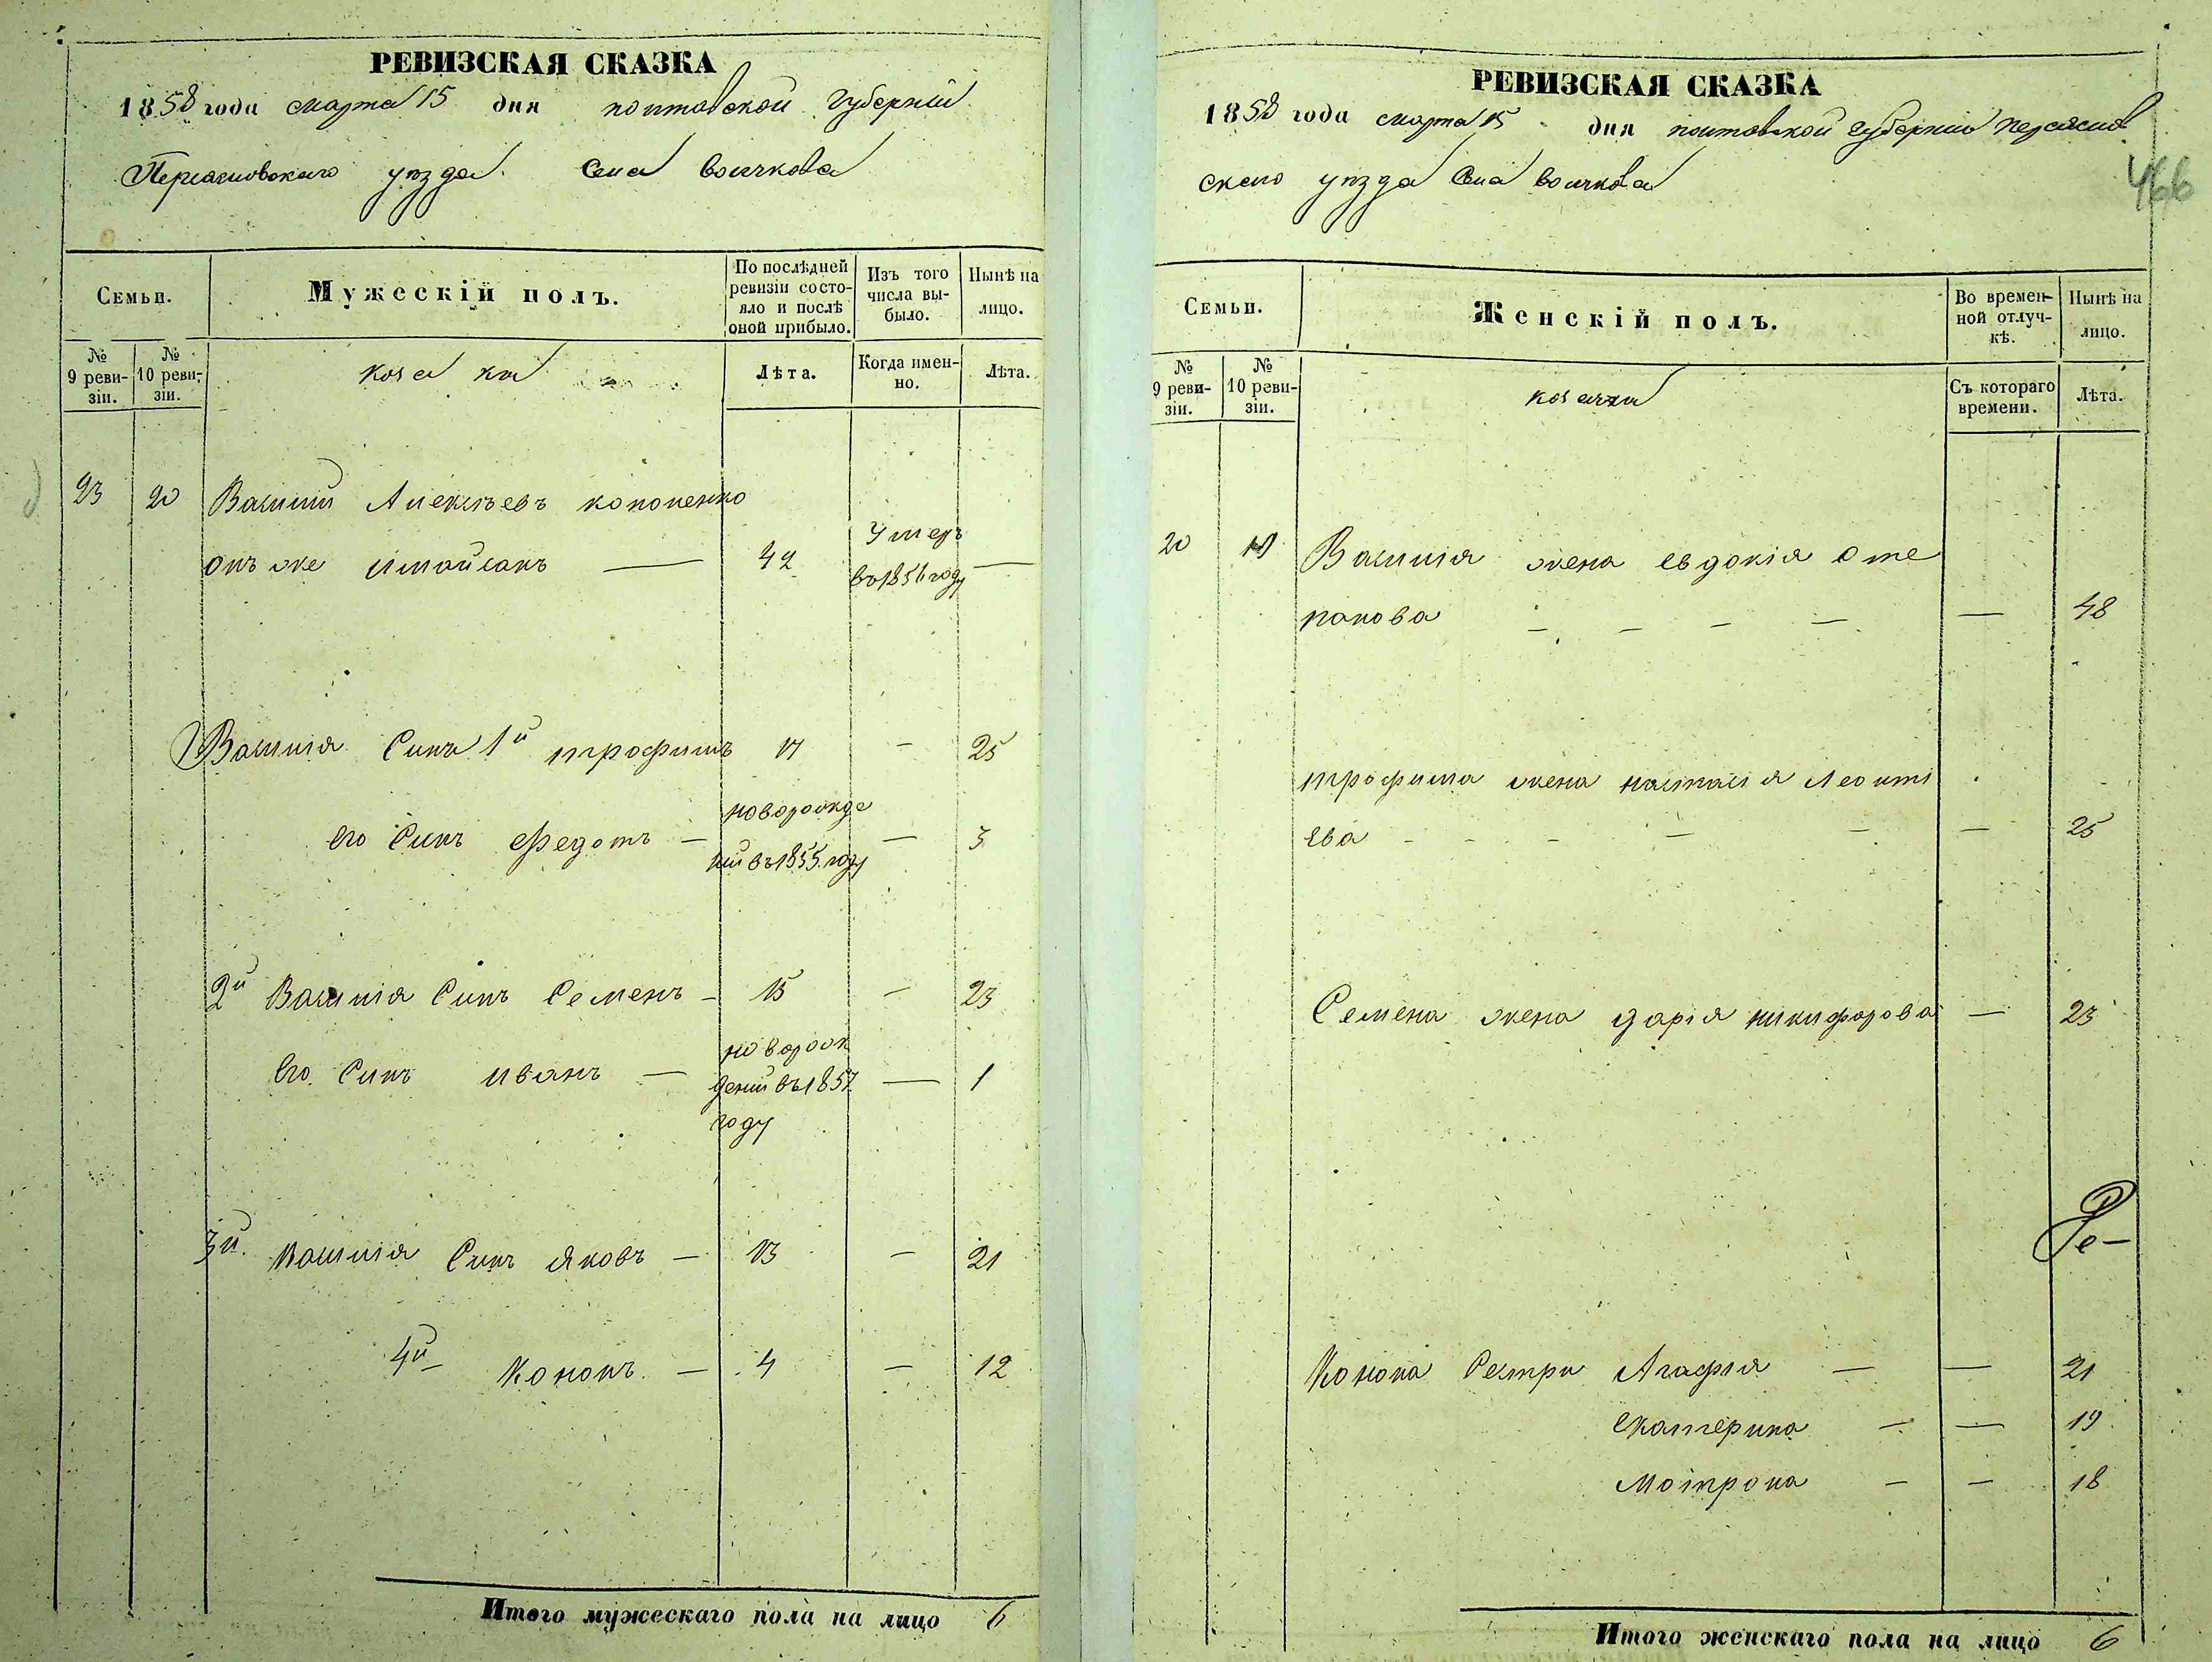 РЕВИЗСКАЯ СКАЗКА
1858 года марта 15 дня полтавской Губерніи
Переясловского уѣзда. Села Войчкова
Семьи.
Мужескій полъ.
По послѣдней ревизіи состо-
яло и послѣ
оной прибыло.
Изъ того
числа вы-
было.
Нынѣ на
лицо.
№
9 реви-
зіи.
№
10 реви-
зіи.
козаки
Лѣта.
Когда имен-
но.
Лѣта.
23 20 Василий Алексѣевъ кононенко
онъ же 42 Умеръ
въ 1856 году —
Василія Синъ 1й трофимъ 17 — 25
Его Синъ Федотъ — новорожде
ний въ 1855 году — 3
2й Василія Синъ Семенъ — 15 — 23
Его Синъ иванъ — новорож
дений въ 1857
году — 1
3й Василія Синъ яковъ — 13 — 21
4й Кононъ — 4 — 12
Итого мужескаго пола на лицо 6
РЕВИЗСКАЯ СКАЗКА
1858 года марта 15 дня полтавской Губерніи переяслов
ского уѣзда Села Войчкова
466
Семьи.
Женскій полъ.
Во времен-
ной отлуч-
кѣ.
Нынѣ на
лицо.
№
9 реви-
зіи.
№
10 реви-
зіи.
козачки
Съ котораго
времени.
Лѣта.
20 Василія жена евдокія Сте
панова — — — — — 48
трофима жена настасія Леонті
ева — — — — — — 25
Семена жена дарія никифорова — 23
Ре—
Конона Сестри Агафія — — 21
екатерина — — 19
мотрона — — 18
Итого женскаго пола на лицо 6